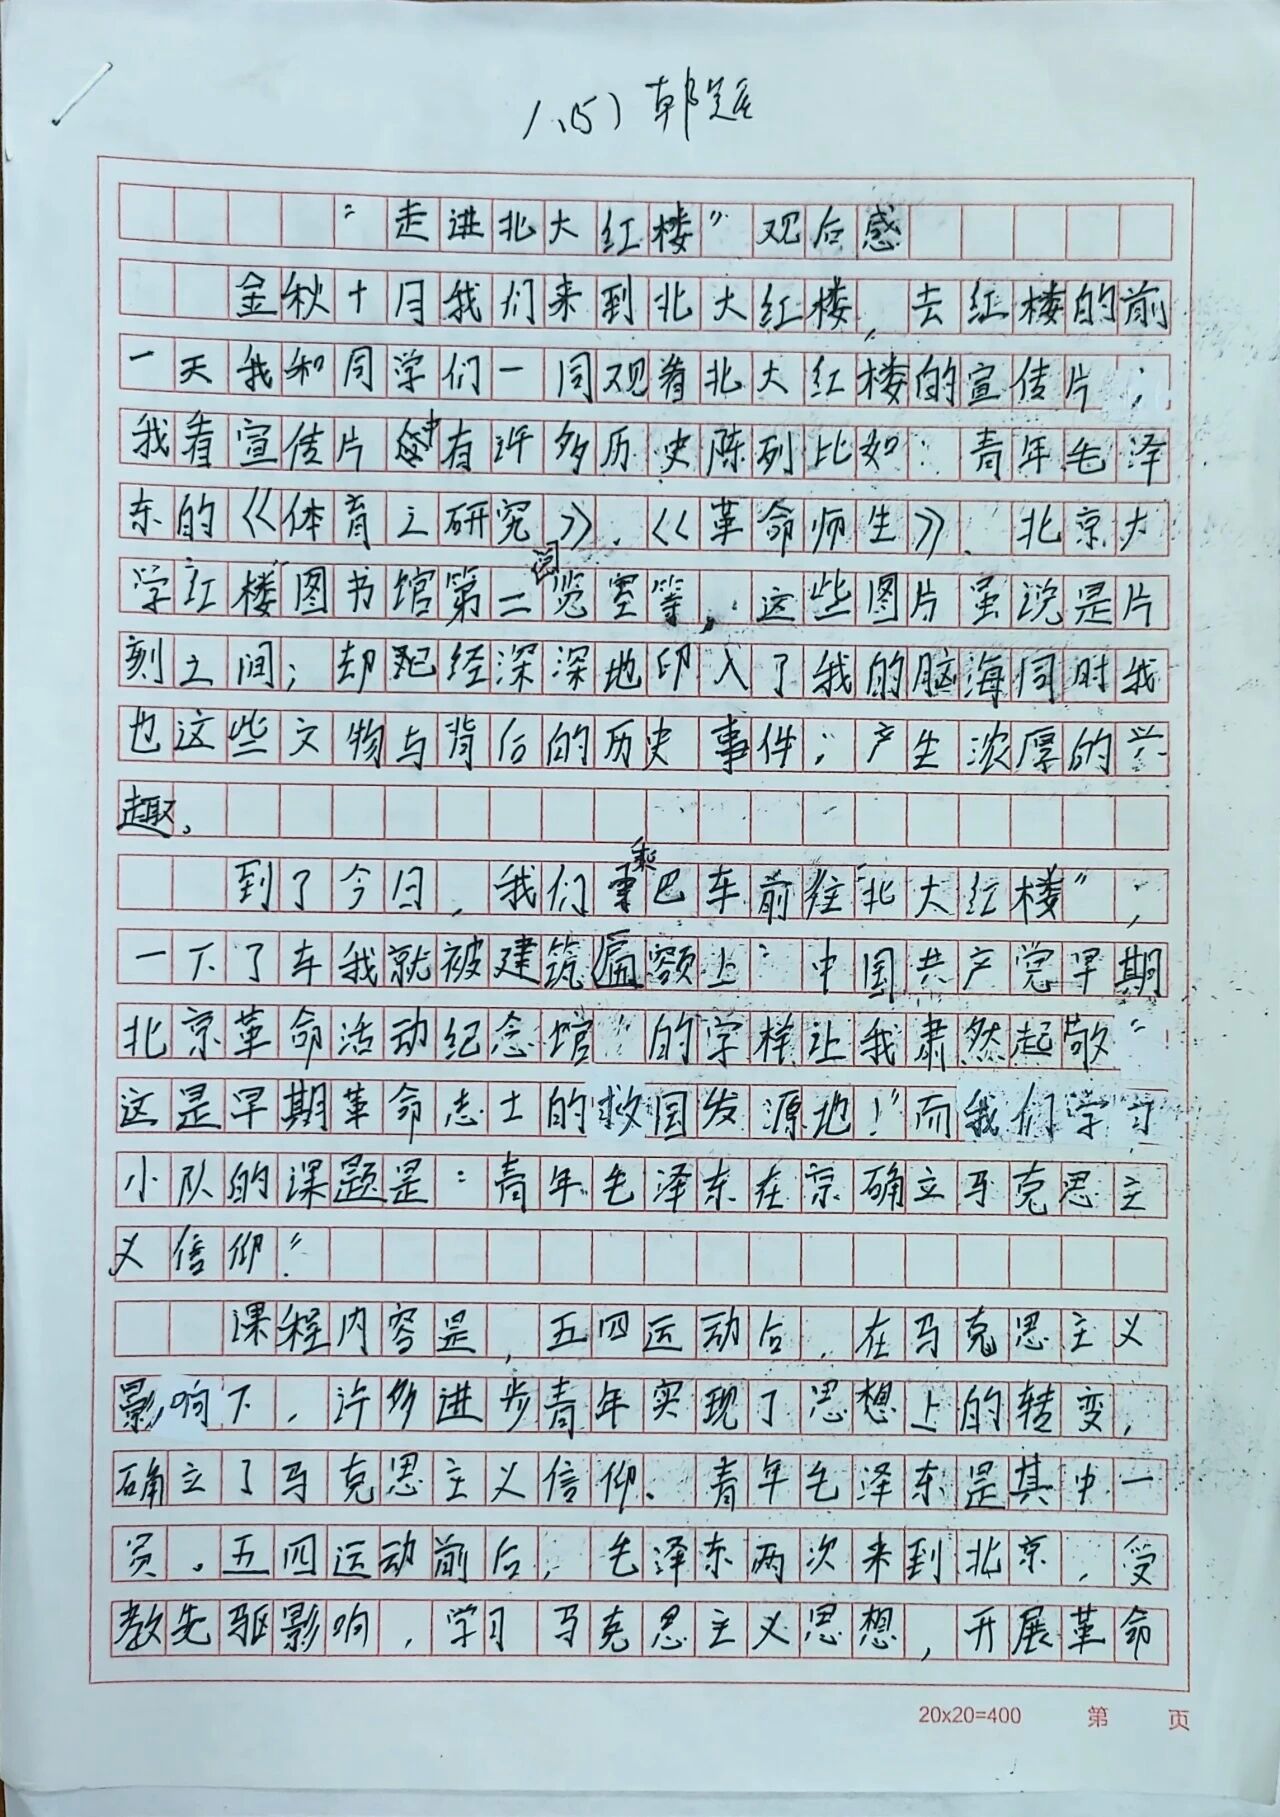 八(5) 韩
“走进北大红楼”观后感
金秋十月我们来到北大红楼,去红楼的前
一天我和同学们一同观看北大红楼的宣传片;
我看宣传片中有许多历史陈列比如:青年毛泽
东的《体育之研究》.《革命师生》、北京大
学红楼图书馆第二阅览室等,这些图片虽说是片
刻之间;却已经深深地印入了我的脑海同时我
也这些文物与背后的历史事件;产生浓厚的兴
趣。
到了今日,我们乘巴车前往“北大红楼”,
一下了车我就被建筑匾额上“中国共产党早期
北京革命活动纪念馆”的字样让我肃然起敬“
这是早期革命志士的救国发源地!”而我们学习
小队的课题是:青年毛泽东在京确立马克思主
义信仰.”
课程内容是,五四运动后,在马克思主义
影响下,许多进步青年实现了思想上的转变,
确立了马克思主义信仰、青年毛泽东是其中一
员。五四运动前后,毛泽东两次来到北京,受
教先驱影响,学习马克思主义思想,开展革命
20x20=400 第 页